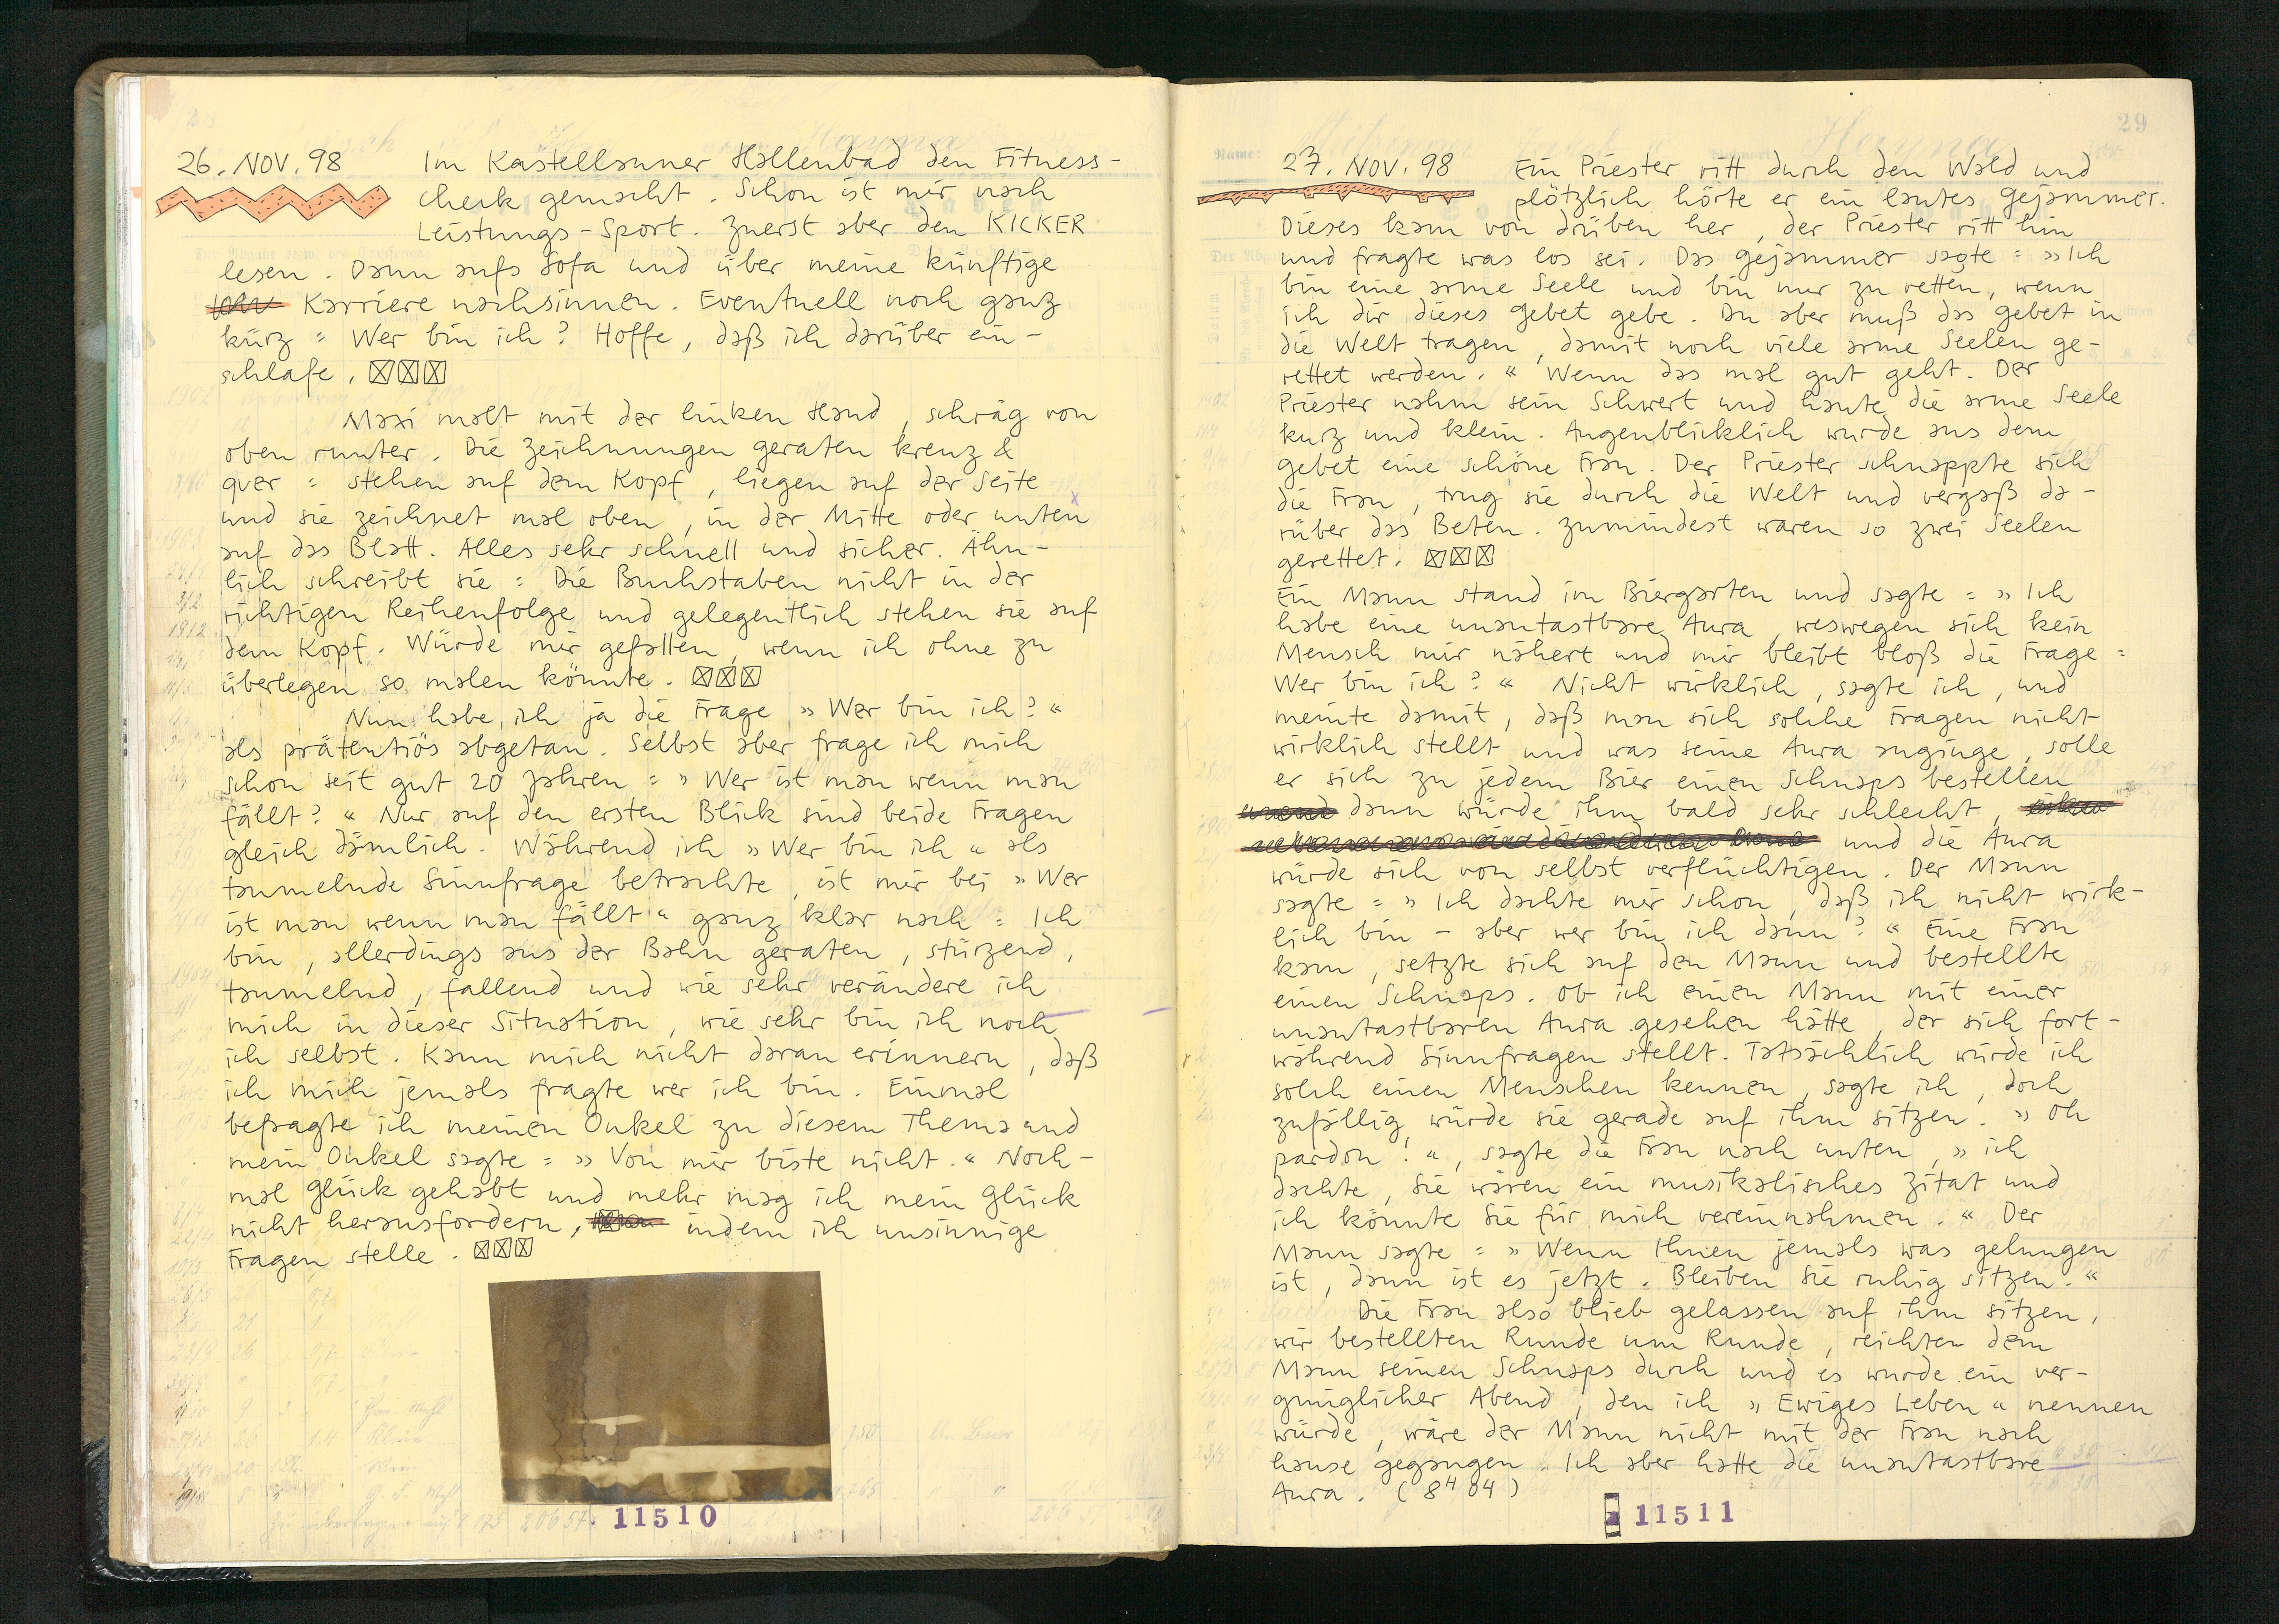 26. NOV. 98 Im Kastellauner Hallenbad den Fitness-
check gemacht. Schon ist mir nach
Leistungs-Sport. Zuerst aber den KICKER
lesen. Dann aufs Sofa und über meine künftige
Karriere nachsinnen. Eventuell noch ganz
kurz = Wer bin ich? Hoffe, daß ich darüber ein-
schlafe. ☒☒☒
Maxi malt mit der linken Hand, schräg von
oben runter. Die Zeichnungen geraten kreuz &
quer = stehen auf dem Kopf, liegen auf der Seite
und sie zeichnet mal oben, in der Mitte oder unten
auf das Blatt. Alles sehr schnell und sicher. Ähn-
lich schreibt sie = Die Buchstaben nicht in der
richtigen Reihenfolge und gelegentlich stehen sie auf
dem Kopf. Würde mir gefallen, wenn ich ohne zu
überlegen so malen könnte. ☒☒☒
Nun habe ich ja die Frage »Wer bin ich?«
als prätentiös abgetan. Selbst aber frage ich mich
schon seit gut 20 Jahren = »Wer ist man wenn man
fällt?« Nur auf den ersten Blick sind beide Fragen
gleich dämlich. Während ich »Wer bin ich« als
taumelnde Sinnfrage betrachte, ist mir bei »Wer
ist man wenn man fällt« ganz klar nach = Ich
bin, allerdings aus der Bahn geraten, stürzend,
taumelnd, fallend und wie sehr verändere ich
mich in dieser Situation, wie sehr bin ich noch
ich selbst. Kann mich nicht daran erinnern, daß
ich mich jemals fragte wer ich bin. Einmal
befragte ich meinen Onkel zu diesem Thema und
mein Onkel sagte = »Von mir biste nicht.« Noch-
mal Glück gehabt und mehr mag ich mein Glück
nicht herausfordern, indem ich unsinnige
Fragen stelle. ☒☒☒
11510
29
Name:
Hayna
27. NOV. 98 Ein Priester ritt durch den Wald und
plötzlich hörte er ein lautes Gejammer.
Dieses kam von drüben her, der Priester ritt hin
und fragte was los sei. Das Gejammer sagte = »Ich
bin eine arme Seele und bin nur zu retten, wenn
ich dir dieses Gebet gebe. Du aber muß das Gebet in
die Welt tragen, damit noch viele arme Seelen ge-
rettet werden.« Wenn das mal gut geht. Der
Priester nahm sein Schwert und haute die arme Seele
kurz und klein. Augenblicklich wurde aus dem
Gebet eine schöne Frau. Der Priester schnappte sich
die Frau, trug sie durch die Welt und vergaß da-
rüber das Beten. Zumindest waren so zwei Seelen
gerettet. ☒☒☒
Ein Mann stand im Biergarten und sagte = »Ich
habe eine unantastbare Aura, weswegen sich kein
Mensch mir nähert und mir bleibt bloß die Frage =
Wer bin ich?« Nicht wirklich, sagte ich, und
meinte damit, daß man sich solche Fragen nicht
wirklich stellt und was seine Aura anginge, solle
er sich zu jedem Bier einen Schnaps bestellen
dann würde ihm bald sehr schlecht,
und die Aura
würde sich von selbst verflüchtigen. Der Mann
sagte = »Ich dachte mir schon, daß ich nicht wirk-
lich bin – aber wer bin ich dann?« Eine Frau
kam, setzte sich auf den Mann und bestellte
einen Schnaps. Ob ich einen Mann mit einer
unantastbaren Aura gesehen hätte, der sich fort-
während Sinnfragen stellt. Tatsächlich würde ich
solch einen Menschen kennen, sagte ich, doch
zufällig würde sie gerade auf ihm sitzen. »Oh
pardon!«, sagte die Frau nach unten, »ich
dachte, Sie wären ein musikalisches Zitat und
ich könnte Sie für mich vereinnahmen.« Der
Mann sagte = »Wenn Ihnen jemals was gelungen
ist, dann ist es jetzt. Bleiben Sie ruhig sitzen.«
Die Frau also blieb gelassen auf ihm sitzen,
wir bestellten Runde um Runde, reichten dem
Mann seinen Schnaps durch und es wurde ein ver-
gnüglicher Abend, den ich »Ewiges Leben« nennen
würde, wäre der Mann nicht mit der Frau nach
hause gegangen. Ich aber hatte die unantastbare
Aura. (8⁴04)
11511